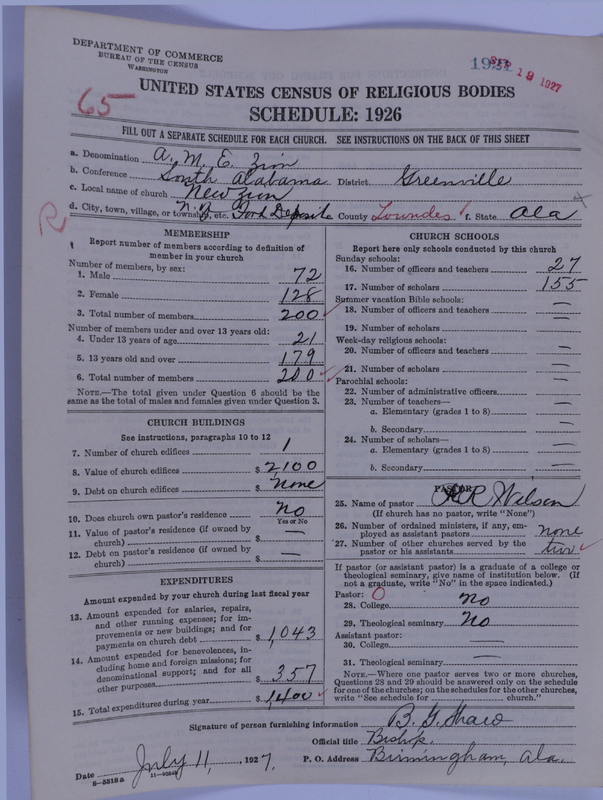 DEPARTMENT OF COMMERCE
BUREAU OF THE CENSUS
WASHINGTON
SEP 19 1927
65
UNITED STATES CENSUS OF RELIGIOUS BODIES
SCHEDULE: 1926
FILL OUT A SEPARATE SCHEDULE FOR EACH CHURCH. SEE INSTRUCTIONS ON THE BACK OF THIS SHEET
a. Denomination A. M. E. Zion
b. Conference South Alabama District Greenville
c. Local name of church New Zion
d. City, town, village, or township, etc. Fort Deposite County Lowndes f. State Ala
R
MEMBERSHIP
Report number of members according to definition of
member in your church
Number of members, by sex:
1. Male 72
2. Female 128
3. Total number of members 200
Number of members under and over 13 years old:
4. Under 13 years of age 21
5. 13 years old and over 179
6. Total number of members 200
NOTE.—The total given under Question 6 should be
the same as the total of males and females given under Question 3.
CHURCH BUILDINGS
See instructions, paragraphs 10 to 12
7. Number of church edifices 1
8. Value of church edifices $ 2,100
9. Debt on church edifices $ none
10. Does church own pastor's residence? no
Yes or No
11. Value of pastor's residence (if owned by
church) $ —
12. Debt on pastor's residence (if owned by
church) $ —
EXPENDITURES
Amount expended by your church during last fiscal year
13. Amount expended for salaries, repairs,
and other running expenses; for im-
provements or new buildings; and for
payments on church debt $ 1,043
14. Amount expended for benevolences, in-
cluding home and foreign missions; for
denominational support; and for all
other purposes $ 357
15. Total expenditures during year $ 1,400
CHURCH SCHOOLS
Report here only schools conducted by this church
Sunday schools:
16. Number of officers and teachers 27
17. Number of scholars 155
Summer vacation Bible schools:
18. Number of officers and teachers —
19. Number of scholars —
Week-day religious schools:
20. Number of officers and teachers —
21. Number of scholars —
Parochial schools:
22. Number of administrative officers —
23. Number of teachers—
a. Elementary (grades 1 to 8) —
b. Secondary —
24. Number of scholars—
a. Elementary (grades 1 to 8) —
b. Secondary —
PASTOR
25. Name of pastor R R Wilson
(If church has no pastor, write "None")
26. Number of ordained ministers, if any, em-
ployed as assistant pastors none
27. Number of other churches served by the
pastor or his assistants two
If pastor (or assistant pastor) is a graduate of a college or
theological seminary, give name of institution below. (If
not a graduate, write "No" in the space indicated.)
Pastor: O
28. College no
29. Theological seminary No
Assistant pastor:
30. College —
31. Theological seminary —
NOTE.—Where one pastor serves two or more churches,
Questions 28 and 29 should be answered only on the schedule
for one of the churches; on the schedules for the other churches,
write "See schedule for church."
Signature of person furnishing information B. G. Shaw
Official title Bishop.
Date July 11, 1927. P. O. Address Birmingham, Ala.
8-5518a